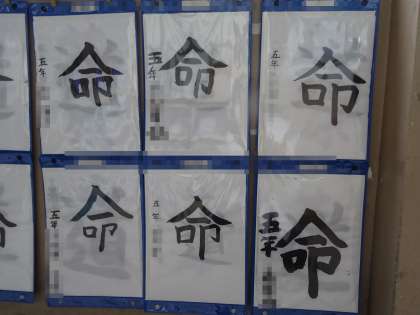 命
五年
命
五年
命
五年
命
五年
命
五年
命
五年